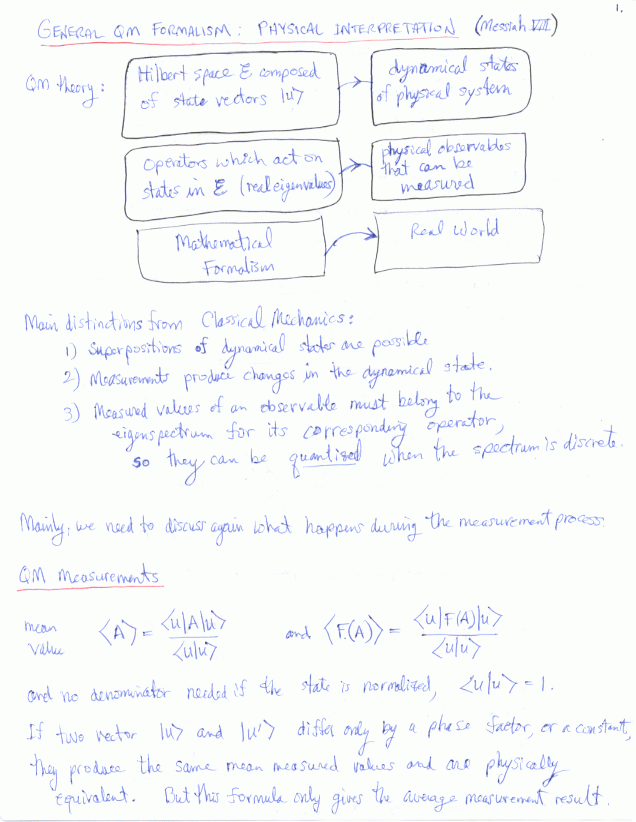 1.
GENERAL QM FORMALISM: PHYSICAL INTERPRETATION (Messiah VIII)
QM theory:
Hilbert space Ɛ composed
of state vectors |u>
dynamical states
of physical system
Operators which act on
states in Ɛ (real eigenvalues)
physical observables
that can be
measured
Mathematical
Formalism
Real World
Main distinctions from Classical Mechanics:
1) Superpositions of dynamical states are possible
2) Measurements produce changes in the dynamical state.
3) Measured values of an observable must belong to the
eigenspectrum for its corresponding operator,
so they can be quantized when the spectrum is discrete.
Mainly, we need to discuss again what happens during the measurement process.
QM Measurements
mean
value
<A> = <u|A|u> / <u|u> and <F(A)> = <u|F(A)|u> / <u|u>
and no denominator needed if the state is normalized, <u|u> = 1.
If two vector |u> and |u'> differ only by a phase factor, or a constant,
they produce the same mean measured values and are physically
equivalent. But this formula only gives the average measurement result.